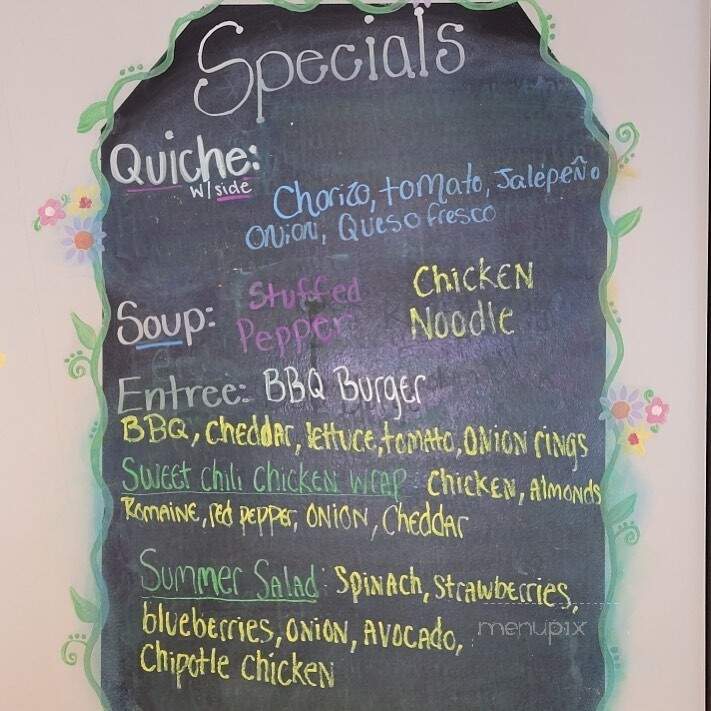 Specials
Quiche:
w/ side
Chorizo, tomato, Jalepeño
Onion, Queso fresco
Soup: Stuffed Pepper
Chicken Noodle
Entree: BBQ Burger
BBQ, Cheddar, lettuce, tomato, onion rings
Sweet chili chicken wrap Chicken, almonds
Romaine, red pepper, onion, Cheddar
Summer Salad: Spinach, strawberries,
blueberries, onion, avocado,
Chipotle chicken
menupix